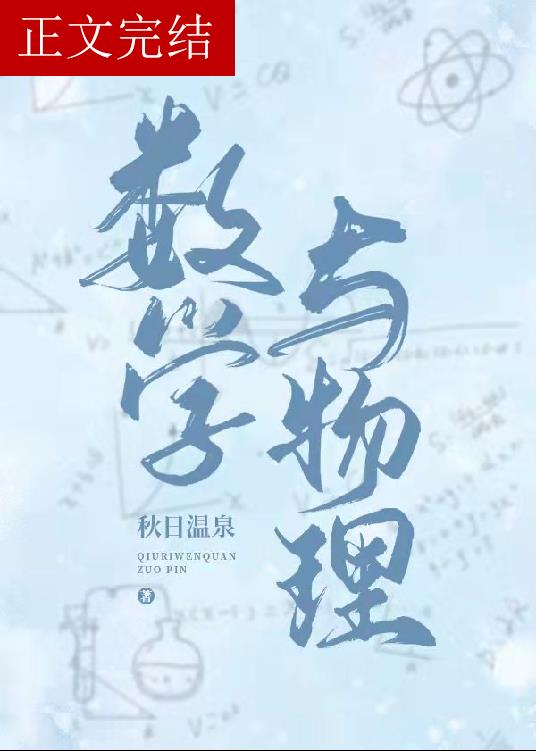 正文完结
数学
与物理
秋日温泉
QIURIWENQUAN
ZUO PIN
著
V = CQ